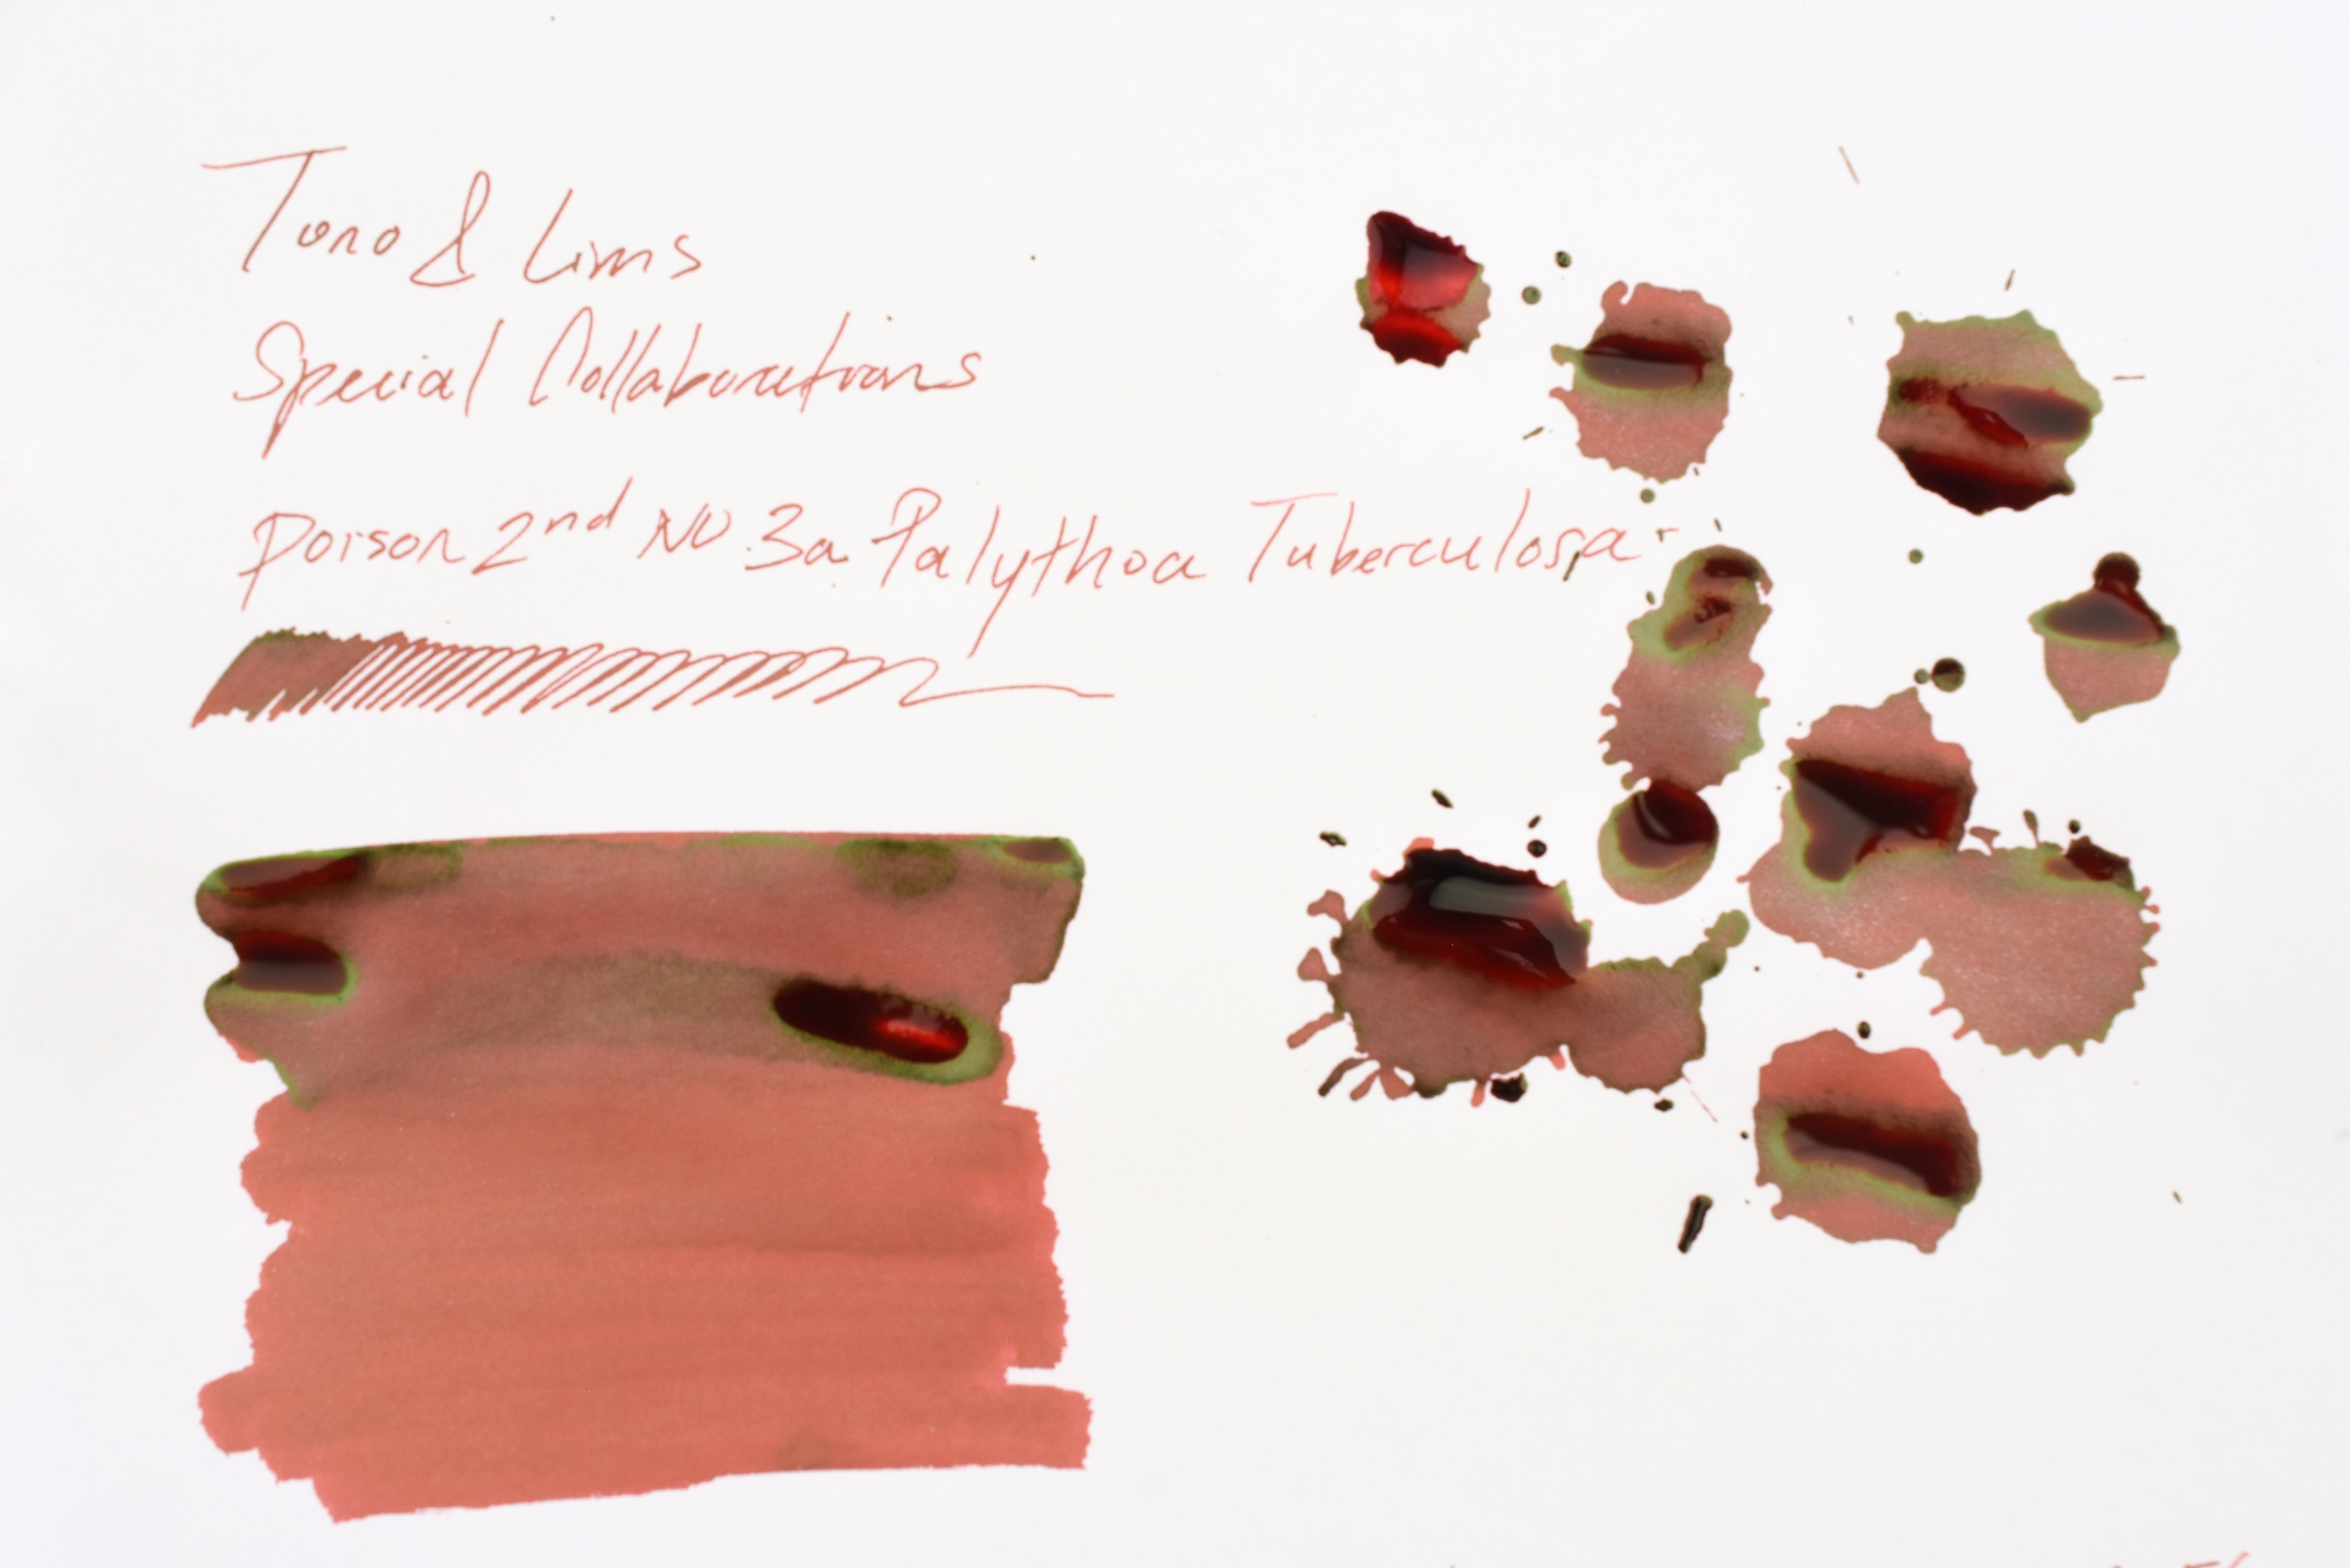 Tono & Lims
Special Collaborations
Poison 2nd No.3a Palythoa Tuberculosa